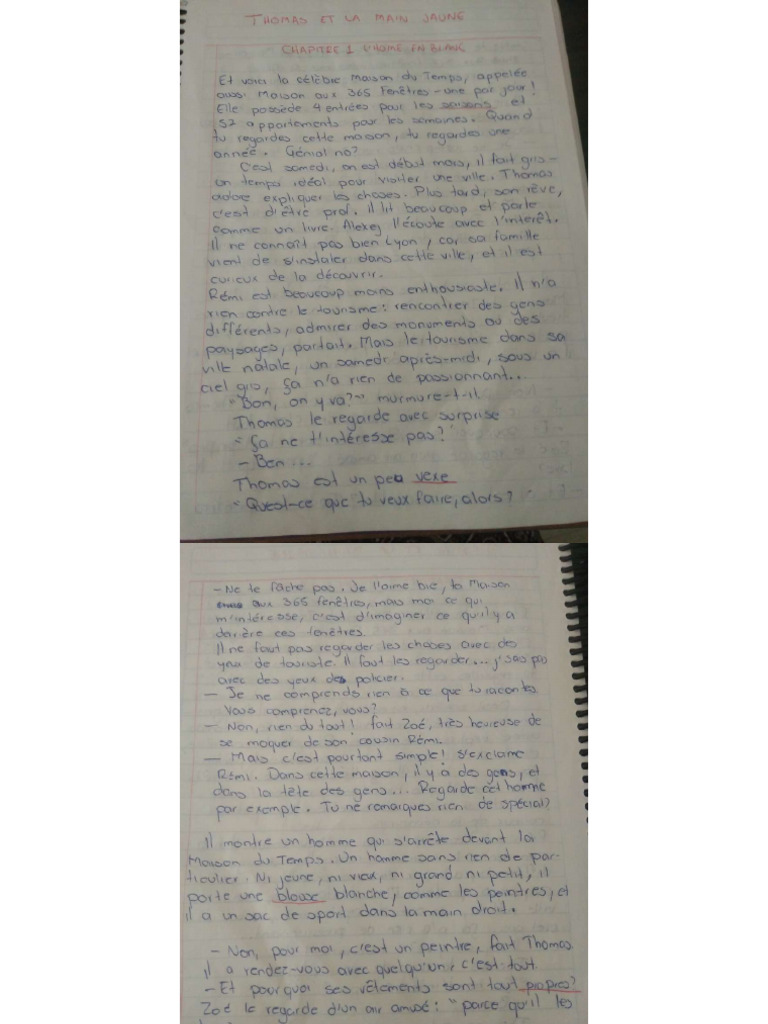 THOMAS ET LA MAIN JAUNE
CHAPITRE 1 L'HOME EN BLANC
Et voici la célèbre Maison du Temps, appelée
aussi Maison aux 365 Fenêtres - une par jour!
Elle possède 4 entrées pour les saisons et
52 appartements pour les semaines. Quand
tu regardes cette maison, tu regardes une
année. Génial no?
C'est samedi, on est début mars, il fait gris -
un temps idéal pour visiter une ville. Thomas
adore expliquer les choses. Plus tard, son rêve,
c'est d'être prof. il lit beaucoup et parle
comme un livre. Alexey l'écoute avec l'interêt.
Il ne connaît pas bien Lyon, car sa famille
vient de s'instaler dans cette ville, et il est
curieux de la découvrir.
Rémi est beaucoup moins enthousiaste. Il n'a
rien contre le tourisme: rencontrer des gens
différents, admirer des monuments ou des
paysages, parfait. Mais le tourisme dans sa
ville natale, un samedi après-midi, sous un
ciel gris, ça n'a rien de passionnant...
"Bon, on y va?" murmure-t-il.
Thomas le regarde avec surprise
"Ça ne t'intéresse pas?"
- Ben...
Thomas est un peu vexe
"Quest-ce que tu veux faire, alors?
- Ne te fâche pas. Je l'aime bie, ta Maison
aux 365 fenêtres, mais moi ce qui
m'intéresse, c'est d'imaginer ce qu'il y a
derière ces fenêtres.
Il ne faut pas regarder les choses avec des
yeux de touriste. Il faut les regarder... j'sais pas
avec des yeux de policier.
- Je ne comprends rien à ce que tu racontes
Vous comprenez, vous?
- Non, rien du tout! fait Zoé, très heureuse de
se moquer de son cousin Rémi.
- Mais c'est pourtant simple! s'exclame
Rémi. Dans cette maison, il y a des gens, et
dans la tête des gens... Regarde cet homme
par exemple. Tu ne remarques rien de spécial?
Il montre un homme qui s'arrête devant la
Maison du Temps. Un homme sans rien de par-
ticulier. Ni jeune, ni vieux, ni grand ni petit, il
porte une blouse blanche, comme les peintres, et
il a un sac de sport dans la main droit.
- Non, pour moi, c'est un peintre, fait Thomas
il a rendez-vous avec quelqu'un, c'est tout.
- Et pourquoi ses vêtements sont tout propres?
Zoé le regarde d'un air amusé: "parce qu'il les